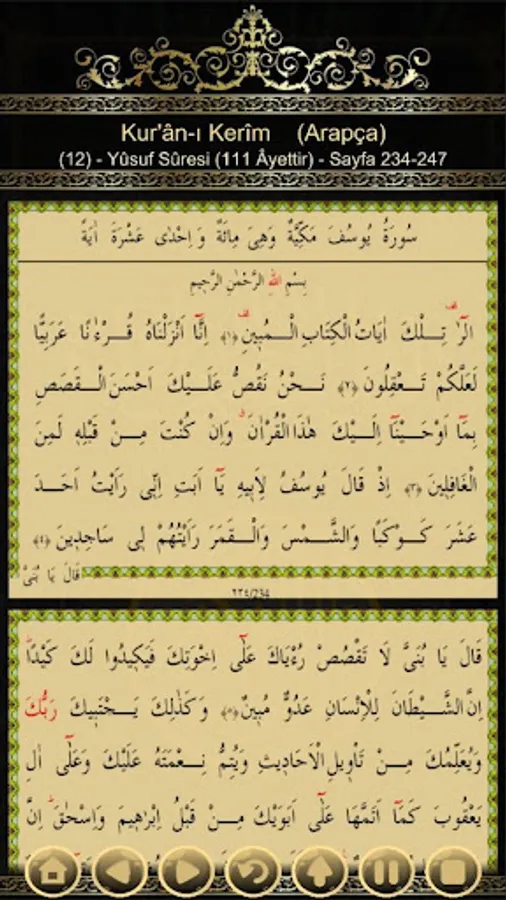 Kur'ân-ı Kerîm (Arapça)
(12) - Yûsuf Sûresi (111 Âyettir) - Sayfa 234-247
سُورَةُ يُوسُفَ مَكِّيَّةٌ وَهِىَ مِائَةٌ وَ اِحْدٰى عَشْرَةَ اٰيَةً
بِسْمِ اللهِ الرَّحْمٰنِ الرَّحٖيمِ
الٓرٰ تِلْكَ اٰيَاتُ الْكِتَابِ الْمُبٖينِ ﴿١﴾ اِنَّٓا اَنْزَلْنَاهُ قُرْءٰنًا عَرَبِيًّا
لَعَلَّكُمْ تَعْقِلُونَ ﴿٢﴾ نَحْنُ نَقُصُّ عَلَيْكَ اَحْسَنَ الْقَصَصِ
بِمَٓا اَوْحَيْنَٓا اِلَيْكَ هٰذَا الْقُرْاٰنَ وَاِنْ كُنْتَ مِنْ قَبْلِهٖ لَمِنَ
الْغَافِلٖينَ ﴿٣﴾ اِذْ قَالَ يُوسُفُ لِاَبٖيهِ يَٓا اَبَتِ اِنّٖى رَاَيْتُ اَحَدَ
عَشَرَ كَوْكَبًا وَالشَّمْسَ وَالْقَمَرَ رَاَيْتُهُمْ لٖى سَاجِدٖينَ ﴿٤﴾
قَالَ يَا بُنَىَّ
٢٣٤/234
قَالَ يَا بُنَىَّ لَا تَقْصُصْ رُءْيَاكَ عَلٰٓى اِخْوَتِكَ فَيَكٖيدُوا لَكَ كَيْدًا
اِنَّ الشَّيْطَانَ لِلْاِنْسَانِ عَدُوٌّ مُبٖينٌ ﴿٥﴾ وَكَذٰلِكَ يَجْتَبٖيكَ رَبُّكَ
وَيُعَلِّمُكَ مِنْ تَاْوٖيلِ الْاَحَادٖيثِ وَيُتِمُّ نِعْمَتَهُ عَلَيْكَ وَعَلٰٓى اٰلِ
يَعْقُوبَ كَمَٓا اَتَمَّهَا عَلٰٓى اَبَوَيْكَ مِنْ قَبْلُ اِبْرٰهٖيمَ وَاِسْحٰقَ اِنَّ